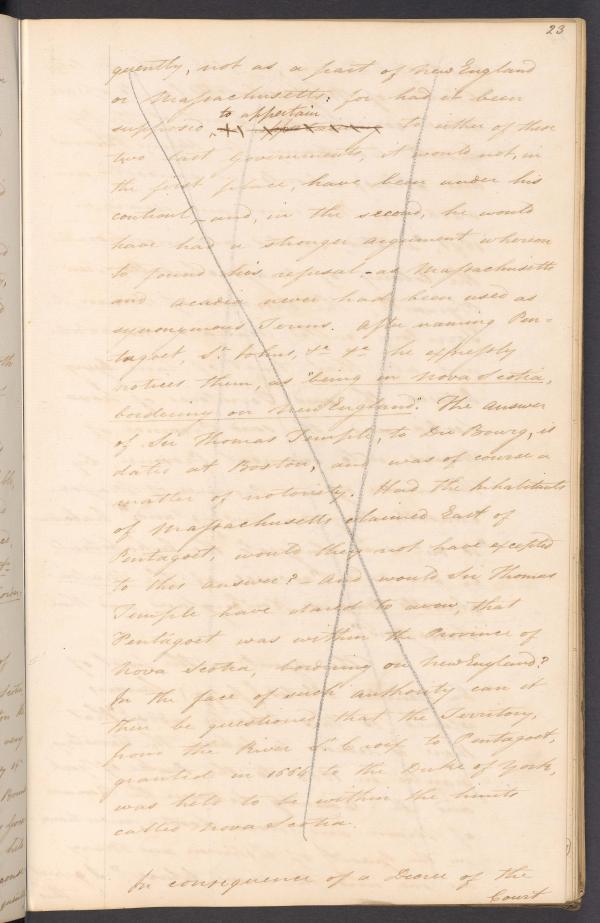 23
quently, not as a part of New England
or Massachusetts; for had it been
to appertain
supposed, to either of these
two last Governments, it would not, in
the first place, have been under his
controul, – and, in the second, he would
have had a stronger argument whereon
to found his refusal, – as Massachusetts
and Acadia never had been used as
synonymous Terms. After naming Pen-
tagoet, St. Johns, &c &c he expressly
notices them, as "being in Nova Scotia,
bordering on New England". The answer
of Sir Thomas Temple, to Du Bourg, is
dated at Boston, and was of course a
matter of notoriety. Had the Inhabitants
of Massachusetts claimed East of
Pentagoet, would they not have excepted
to this answer? – And would Sir Thomas
Temple have dared to avow, that
Pentagoet was within the Province of
Nova Scotia, bordering on New England?
In the face of such authority can it
then be questioned that the Territory,
from the River St. Croix to Pentagoet,
granted in 1664 to the Duke of York,
was held to be within the limits
called Nova Scotia.
In consequence of a Decree of the
Court